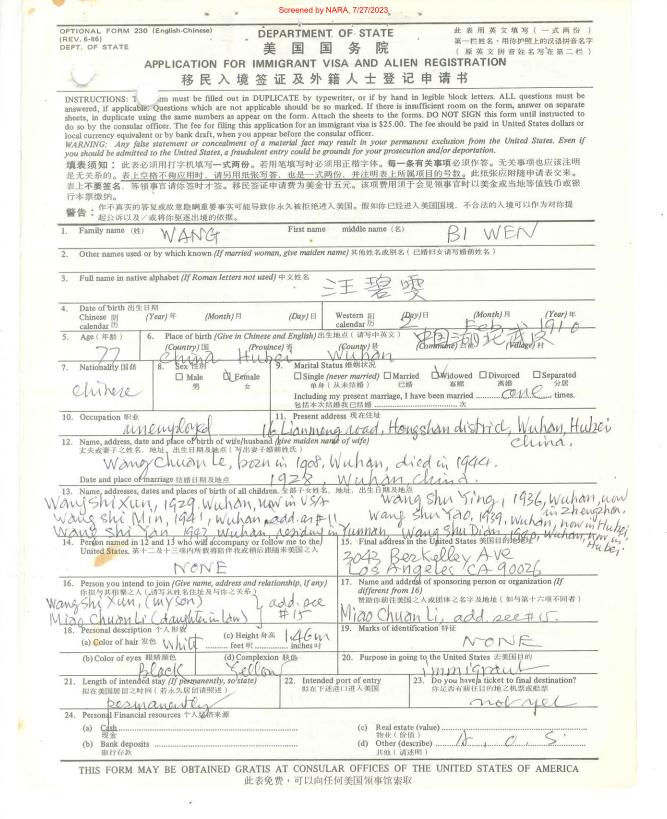 Screened by NARA, 7/27/2023
OPTIONAL FORM 230 (English-Chinese)
(REV. 6-86)
DEPT. OF STATE
DEPARTMENT OF STATE
美国国务院
此表用英文填写(一式两份)
第一栏姓名,用你护照上的汉语拼音名字
(原英文拼音姓名写在第二栏)
APPLICATION FOR IMMIGRANT VISA AND ALIEN REGISTRATION
移民入境签证及外籍人士登记申请书
INSTRUCTIONS: must be filled out in DUPLICATE by typewriter, or if by hand in legible block letters. ALL questions must be
answered, if applicable. Questions which are not applicable should be so marked. If there is insufficient room on the form, answer on separate
sheets, in duplicate using the same numbers as appear on the form. Attach the sheets to the forms. DO NOT SIGN this form until instructed to
do so by the consular officer. The fee for filing this application for an immigrant visa is $25.00. The fee should be paid in United States dollars or
local currency equivalent or by bank draft, when you appear before the consular officer.
WARNING: Any false statement or concealment of a material fact may result in your permanent exclusion from the United States. Even if
you should be admitted to the United States, a fraudulent entry could be grounds for your prosecution and/or deportation.
填表须知:此表必须用打字机填写一式两份。若用笔填写时必须用正楷字体。每一条有关事项必须作答。无关事项也应该注明
是无关系的。表上空格不夠应用时,请另用纸张写答,也是一式两份,并注明表上所属项目的号数。此纸张应附隨申请表交来。
表上不要签名,等领事官请你签时才签。移民签证申请费为美金廿五元。该项费用须于会见领事官时以美金或当地等值货币或银
行本票缴纳。
警告:你不真实的答复或故意隐瞒重要事实可能导致你永久被拒绝进入美国。假如你已经进入美国国境,不合法的入境可以作为对你提
起公诉以及/或将你驱逐出境的依据。
1. Family name (姓) WANG First name middle name (名) BI WEN
2. Other names used or by which known (If married woman, give maiden name) 其他姓名或别名(已婚妇女请写婚前姓名)
3. Full name in native alphabet (If Roman letters not used) 中文姓名 汪碧雯
4. Date of birth 出生日期
Chinese 阴 calendar 历 (Year) 年 (Month) 月 (Day) 日 Western 阳 calendar 历 (Day) 日 (Month) 月 (Year) 年
2 Feb 1910
5. Age (年龄) 77 6. Place of birth (Give in Chinese and English) 出生地点(请写中英文) 中国湖北武汉
(Country) 国 (Province) 省 (County) 县 (Commune) (Village) 村
China Hubei Wuhan
7. Nationality 国籍 Chinese
8. Sex 性别
☐ Male 男 ☑ Female 女
9. Marital Status 婚姻状况
☐ Single (never married) 单身(从未结婚) ☐ Married 已婚 ☑ Widowed 寡鳏 ☐ Divorced 离婚 ☐ Separated 分居
Including my present marriage, I have been married one times.
包括本次结婚我已结婚 次
10. Occupation 职业 unemployed
11. Present address 现在住址
16 Lianmeng road, Hongshan district, Wuhan, Hubei China.
12. Name, address, date and place of birth of wife/husband (give maiden name of wife)
丈夫或妻子之姓名、地址、出生日期及地点(写出妻子婚前姓氏)
Wang Chuan Le, born in 1908, Wuhan, died in 1944.
Date and place of marriage 结婚日期及地点 1928, Wuhan, china.
13. Names, addresses, dates and places of birth of all children. 全部子女姓名、地址、出生日期及地点
Wang Shi Xun, 1929, Wuhan, now in USA Wang Shu Ying, 1936, Wuhan, now in Zhengzhou,
Wang Shi Min, 1941, Wuhan, add. as #11 Wang Shu Yao, 1939, Wuhan, now in Hubei,
Wang Shi Yan 1942 Wuhan, residing in Yunnan, Wang Shu Dian Wuhan, now in Hubei
14. Person named in 12 and 13 who will accompany or follow me to the
United States. 第十二及十三项內所载将陪伴我或稍后跟随来美国之人
NONE
15. Final address in the United States 美国目的地地址
3042 Berkelley Ave
Los Angeles CA 90026
16. Person you intend to join (Give name, address and relationship, if any)
你拟与其相聚之人(请写其姓名住址及与你之关系)
Wang Shi Xun, (my son)
Miao Chuan Li (daughter in law) } add. see #15
17. Name and address of sponsoring person or organization (If
different from 16)
赞助你前往美国之人或团体之名字及地址(如与第十六项不同者)
Miao Chuan Li, add. see #15.
18. Personal description 个人形貌
(a) Color of hair 发色 white (c) Height 身高 146m
feet 呎 inches 吋
(b) Color of eyes 眼睛颜色 Black (d) Complexion 肤色 Yellow
19. Marks of identification 特征 NONE
20. Purpose in going to the United States 去美国目的
immigrant
21. Length of intended stay (If permanently, so state)
拟在美国居留之时间(若永久居留请照述)
permanently
22. Intended port of entry
拟在下述港口进入美国
23. Do you have a ticket to final destination?
你是否有前往目的地之机票或船票
not yet
24. Personal Financial resources 个人经济来源
(a) Cash
现金
(b) Bank deposits
银行存款
(c) Real estate (value)
物业(价值)
(d) Other (describe) A. O. S.
其他(请述明)
THIS FORM MAY BE OBTAINED GRATIS AT CONSULAR OFFICES OF THE UNITED STATES OF AMERICA
此表免费,可以向任何美国领事馆索取